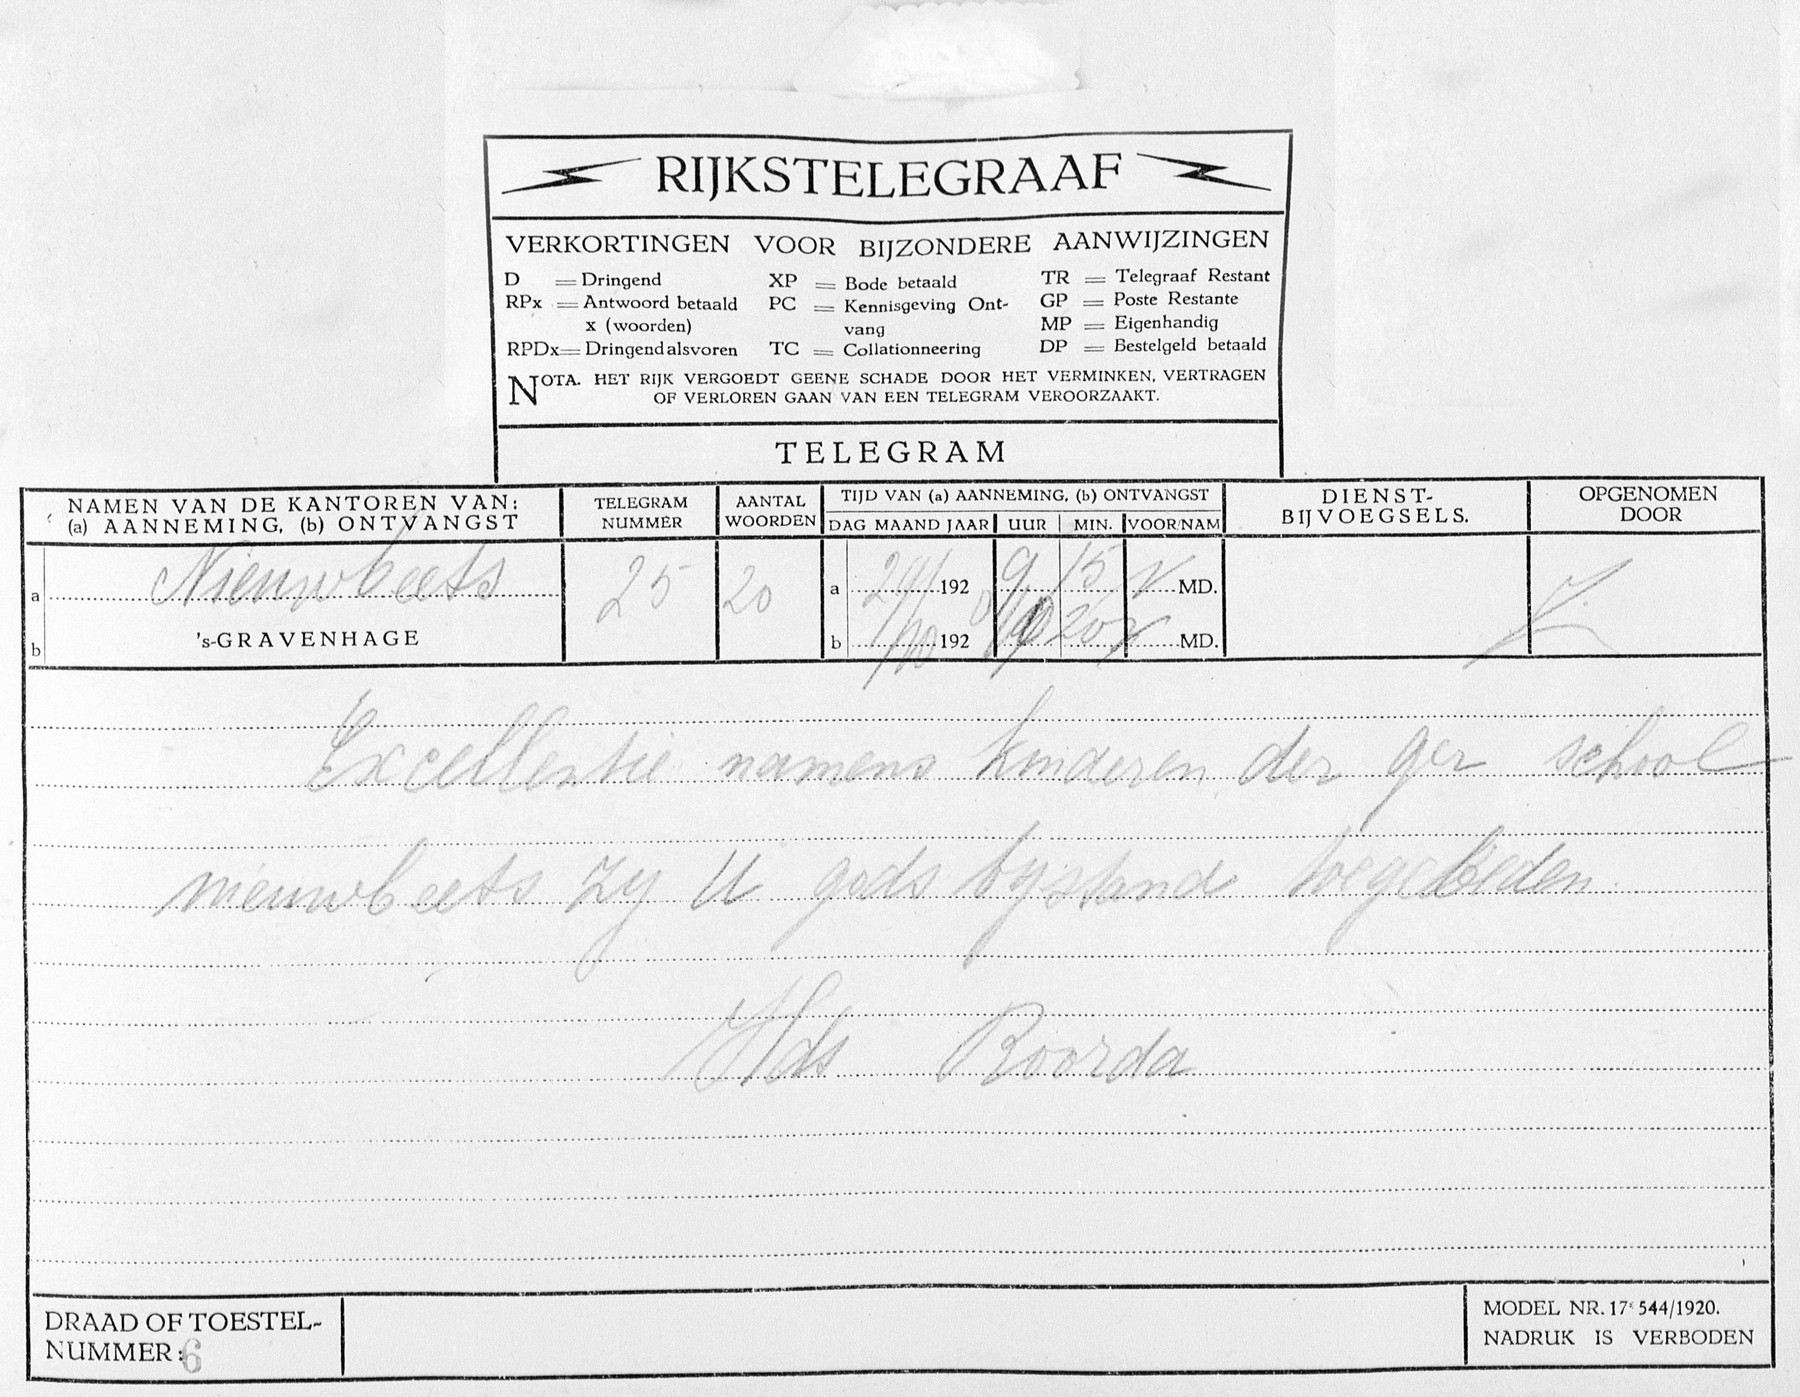 RIJKSTELEGRAAF
VERKORTINGEN VOOR BIJZONDERE AANWIJZINGEN
D = Dringend
RPx = Antwoord betaald
x (woorden)
RPDx = Dringend alsvoren
XP = Bode betaald
PC = Kennisgeving Ont-
vang
TC = Collationneering
TR = Telegraaf Restant
GP = Poste Restante
MP = Eigenhandig
DP = Bestelgeld betaald
NOTA. HET RIJK VERGOEDT GEENE SCHADE DOOR HET VERMINKEN, VERTRAGEN
OF VERLOREN GAAN VAN EEN TELEGRAM VEROORZAAKT.
TELEGRAM
NAMEN VAN DE KANTOREN VAN:
(a) AANNEMING, (b) ONTVANGST
TELEGRAM
NUMMER
AANTAL
WOORDEN
TIJD VAN (a) AANNEMING, (b) ONTVANGST
DAG MAAND JAAR UUR MIN. VOOR/NAM
DIENST-
BIJVOEGSELS.
OPGENOMEN
DOOR
a Nieuwbeets 25 20 a 192 9 15 v MD.
b 's-GRAVENHAGE b 192 20 v MD.
Excellentie namens kinderen der ger school
nieuwbeets zy U gods bystand toegebeden
Hds Roorda
DRAAD OF TOESTEL-
NUMMER: 6
MODEL NR. 17ᵉ 544/1920.
NADRUK IS VERBODEN